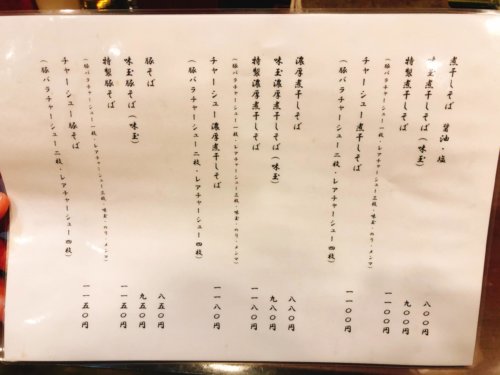 煮干しそば 醤油・塩 八〇〇円
味玉煮干しそば（味玉） 九〇〇円
特製煮干しそば 一一〇〇円
（豚バラチャーシュー一枚・レアチャーシュー三枚・味玉・のり・メンマ）
チャーシュー煮干しそば 一一〇〇円
（豚バラチャーシュー二枚・レアチャーシュー四枚）
濃厚煮干しそば 八八〇円
味玉濃厚煮干しそば（味玉） 九八〇円
特製濃厚煮干しそば 一一八〇円
（豚バラチャーシュー一枚・レアチャーシュー三枚・味玉・のり・メンマ）
チャーシュー濃厚煮干しそば 一一八〇円
（豚バラチャーシュー二枚・レアチャーシュー四枚）
豚そば 八五〇円
味玉豚そば（味玉） 九五〇円
特製豚そば 一一五〇円
（豚バラチャーシュー一枚・レアチャーシュー三枚・味玉・のり・メンマ）
チャーシュー豚そば 一一五〇円
（豚バラチャーシュー二枚・レアチャーシュー四枚）